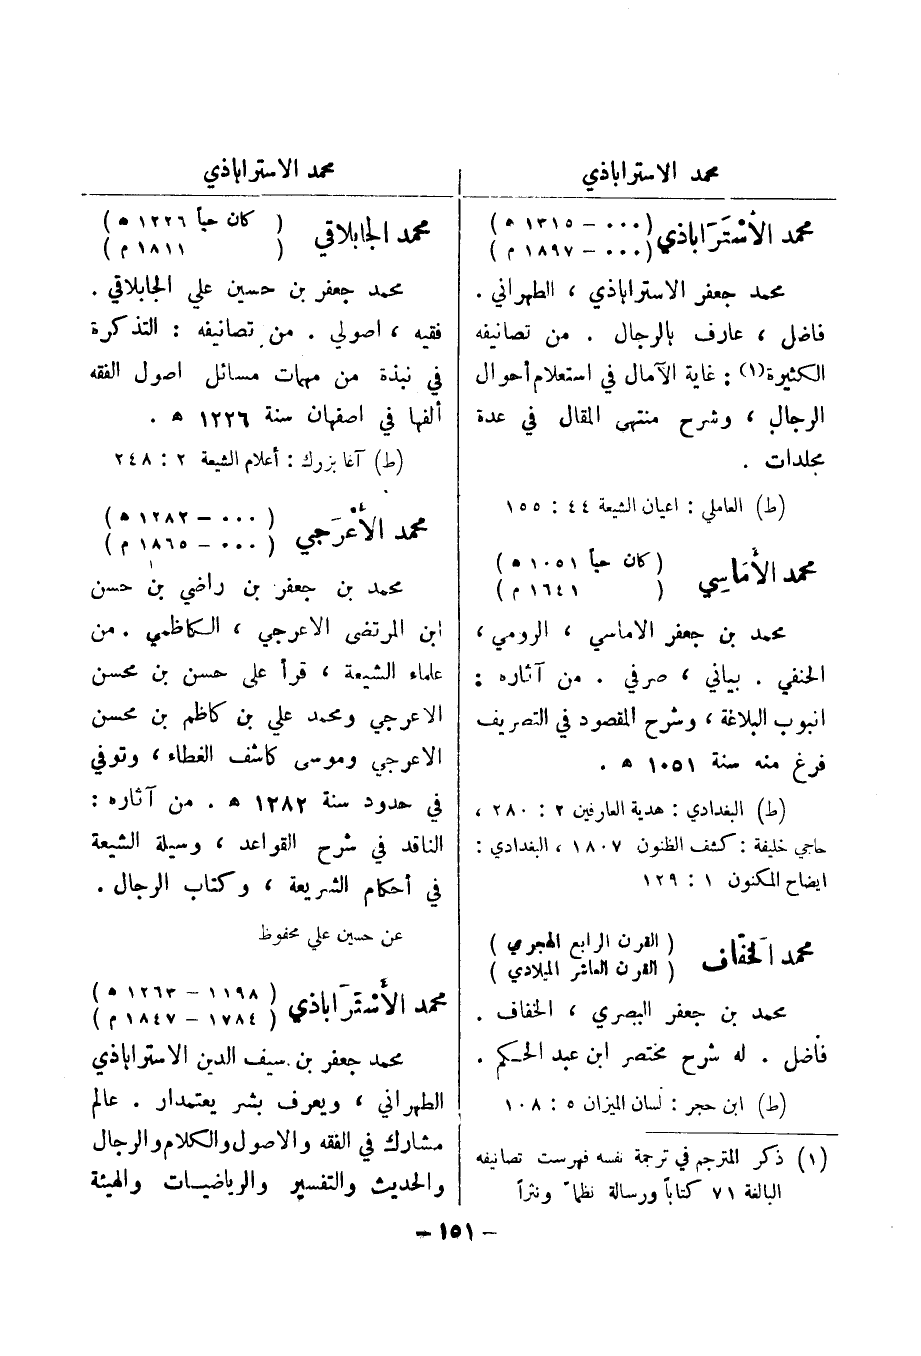 محمد الاستراباذي
محمد الأسْترَاباذي (٠٠٠ - ١٣١٥ ه)
(٠٠٠ - ١٨٩٧ م)
محمد جعفر الاستراباذي ، الطهراني .
فاضل ، عارف بالرجال . من تصانيفه
الكثيرة(١) : غاية الآمال في استعلام أحوال
الرجال ، وشرح منتهى المقال في عدة
مجلدات .
(ط) العاملي : اعيان الشيعة ٤٤ : ١٥٥
محمد الأمَاسِي (كان حياً ١٠٥١ ه)
( ١٦٤١ م)
محمد بن جعفر الاماسي ، الرومي ،
الحنفي . بياني ، صرفي . من آثاره :
انبوب البلاغة ، وشرح المقصود في التصريف
فرغ منه سنة ١٠٥١ ه .
(ط) البغدادي : هدية العارفين ٢ : ٢٨٠ ،
حاجي خليفة : كشف الظنون ١٨٠٧ ، البغدادي :
ايضاح المكنون ١ : ١٢٩
محمد الخفّاف (القرن الرابع الهجري)
(القرن العاشر الميلادي)
محمد بن جعفر البصري ، الخفاف .
فاضل . له شرح مختصر ابن عبد الحكم .
(ط) ابن حجر : لسان الميزان ٥ : ١٠٨
(١) ذكر المترجم في ترجمة نفسه فهرست تصانيفه
البالغة ٧١ كتاباً ورسالة نظماً ونثراً
محمد الاستراباذي
محمد الجابلاقي (كان حياً ١٢٢٦ ه)
( ١٨١١ م)
محمد جعفر بن حسين علي الجابلاقي .
فقيه ، اصولي . من تصانيفه : التذكرة
في نبذة من مهمات مسائل اصول الفقه
ألفها في اصفهان سنة ١٢٢٦ ه .
(ط) آغا بزرك : أعلام الشيعة ٢ : ٢٤٨
محمد الأعْرَجي (٠٠٠ - ١٢٨٢ ه)
(٠٠٠ - ١٨٦٥ م)
محمد بن جعفر بن راضي بن حسن
ابن المرتضى الاعرجي ، الكاظمي . من
علماء الشيعة ، قرأ على حسن بن محسن
الاعرجي ومحمد علي بن كاظم بن محسن
الاعرجي وموسى كاشف الغطاء ، وتوفي
في حدود سنة ١٢٨٢ ه . من آثاره :
الناقد في شرح القواعد ، وسيلة الشيعة
في أحكام الشريعة ، وكتاب الرجال .
عن حسين علي محفوظ
محمد الأسْترَاباذي (١١٩٨ - ١٢٦٣ ه)
(١٧٨٤ - ١٨٤٧ م)
محمد جعفر بن سيف الدين الاستراباذي
الطهراني ، ويعرف بشر يعتمدار . عالم
مشارك في الفقه والاصول والكلام والرجال
والحديث والتفسير والرياضيات والهيئة
- ١٥١ -